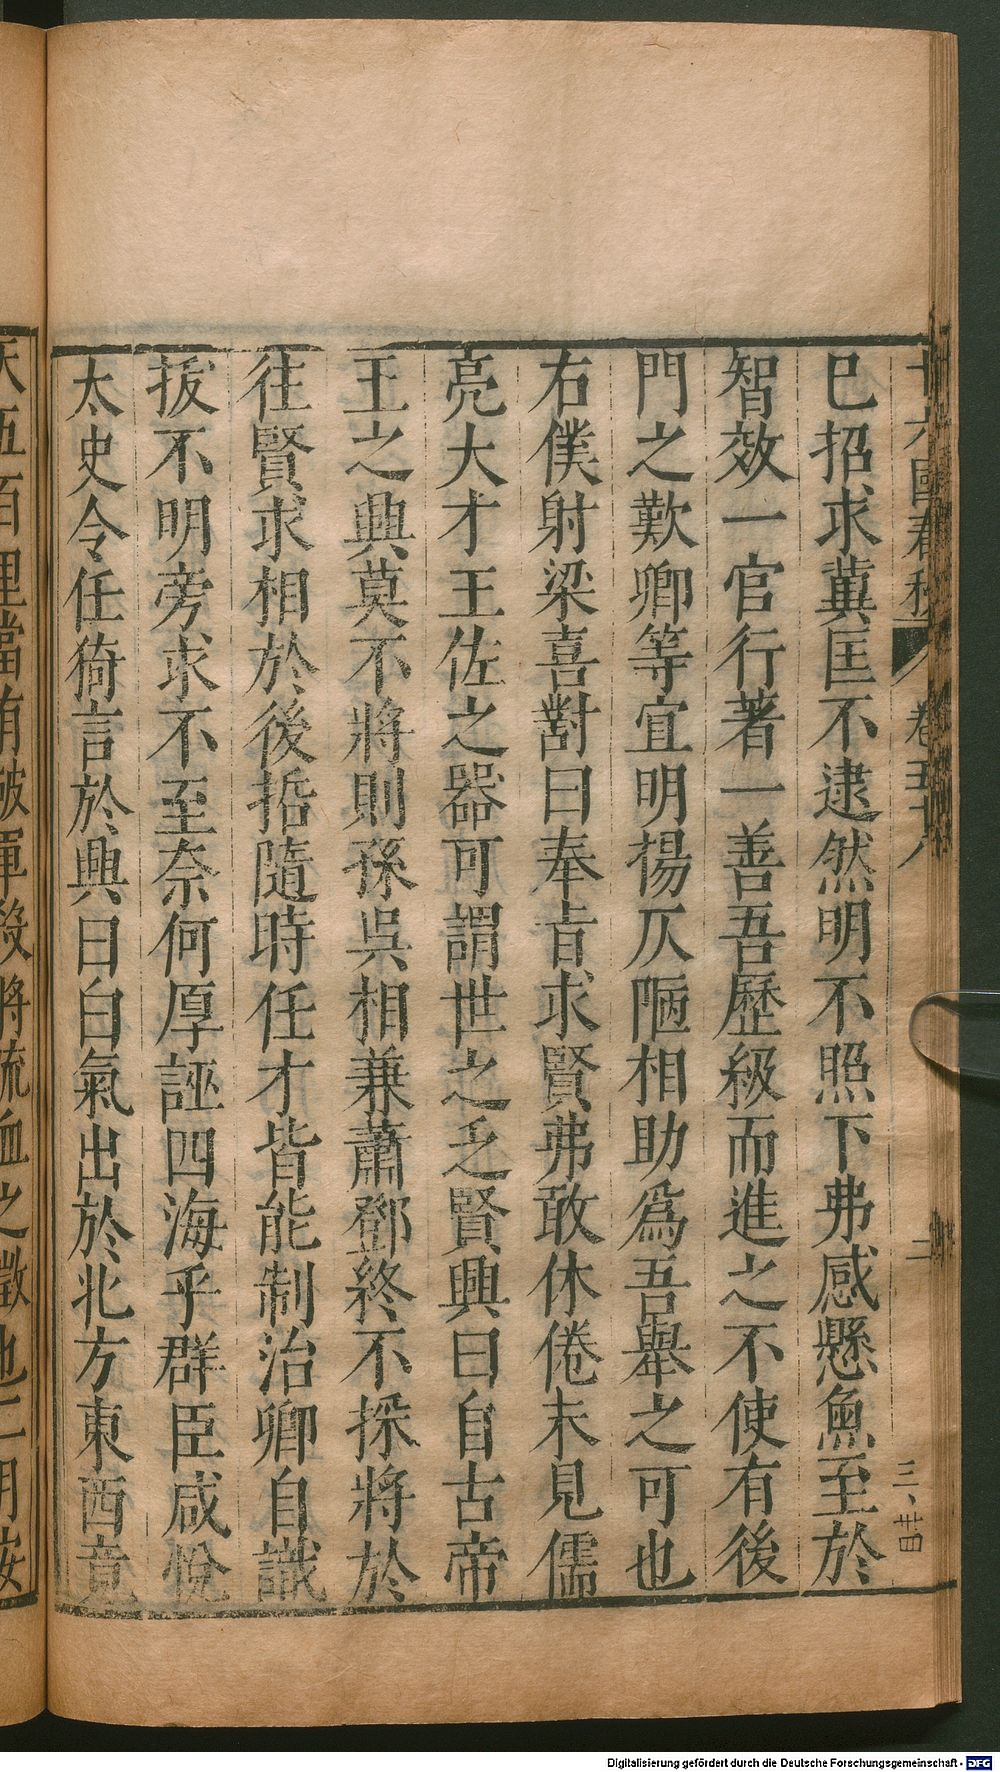 十六國春秋 卷五十八 二 三、廿四
已招求冀匡不逮然明不照下弗感懸魚至於
智效一官行著一善吾歷級而進之不使有後
門之歎卿等宜明揚仄陋相助爲吾舉之可也
右僕射梁喜對曰奉旨求賢弗敢休倦未見儒
亮大才王佐之器可謂世之乏賢興曰自古帝
王之興莫不將則孫吳相兼蕭鄧終不採將於
往賢求相於後哲隨時任才皆能制治卿自識
拔不明旁求不至奈何厚誣四海乎群臣咸悅
太史令任猗言於興曰白氣出於北方東西竟
天五百里當有破軍殺將流血之徵也二月安
Digitalisierung gefördert durch die Deutsche Forschungsgemeinschaft - DFG